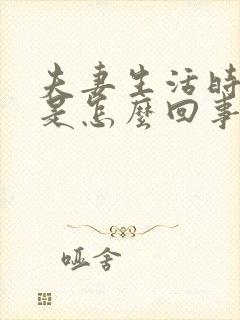 夫妻生活时
是怎麽回事
哑舍